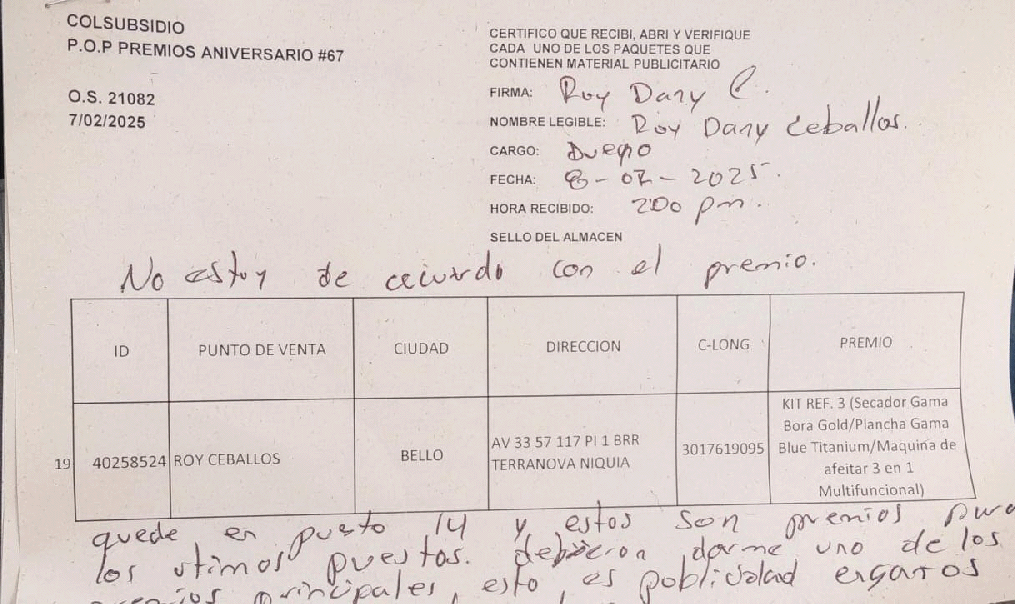 COLSUBSIDIO
P.O.P PREMIOS ANIVERSARIO #67
O.S. 21082
7/02/2025
CERTIFICO QUE RECIBI, ABRI Y VERIFIQUE
CADA UNO DE LOS PAQUETES QUE
CONTIENEN MATERIAL PUBLICITARIO
FIRMA: Roy Dany C.
NOMBRE LEGIBLE: Roy Dany Ceballos.
CARGO: Dueño
FECHA: 8-02-2025.
HORA RECIBIDO: 200 pm.
SELLO DEL ALMACEN
No estoy de acuerdo con el premio.
ID PUNTO DE VENTA CIUDAD DIRECCION C-LONG PREMIO
19 40258524 ROY CEBALLOS BELLO AV 33 57 117 PI 1 BRR TERRANOVA NIQUIA 3017619095 KIT REF. 3 (Secador Gama
Bora Gold/Plancha Gama
Blue Titanium/Maquina de
afeitar 3 en 1
Multifuncional)
quede en puesto 14 y estos son premios para
los utimos puestos. debieron darme uno de los
principales, esto es publicidad